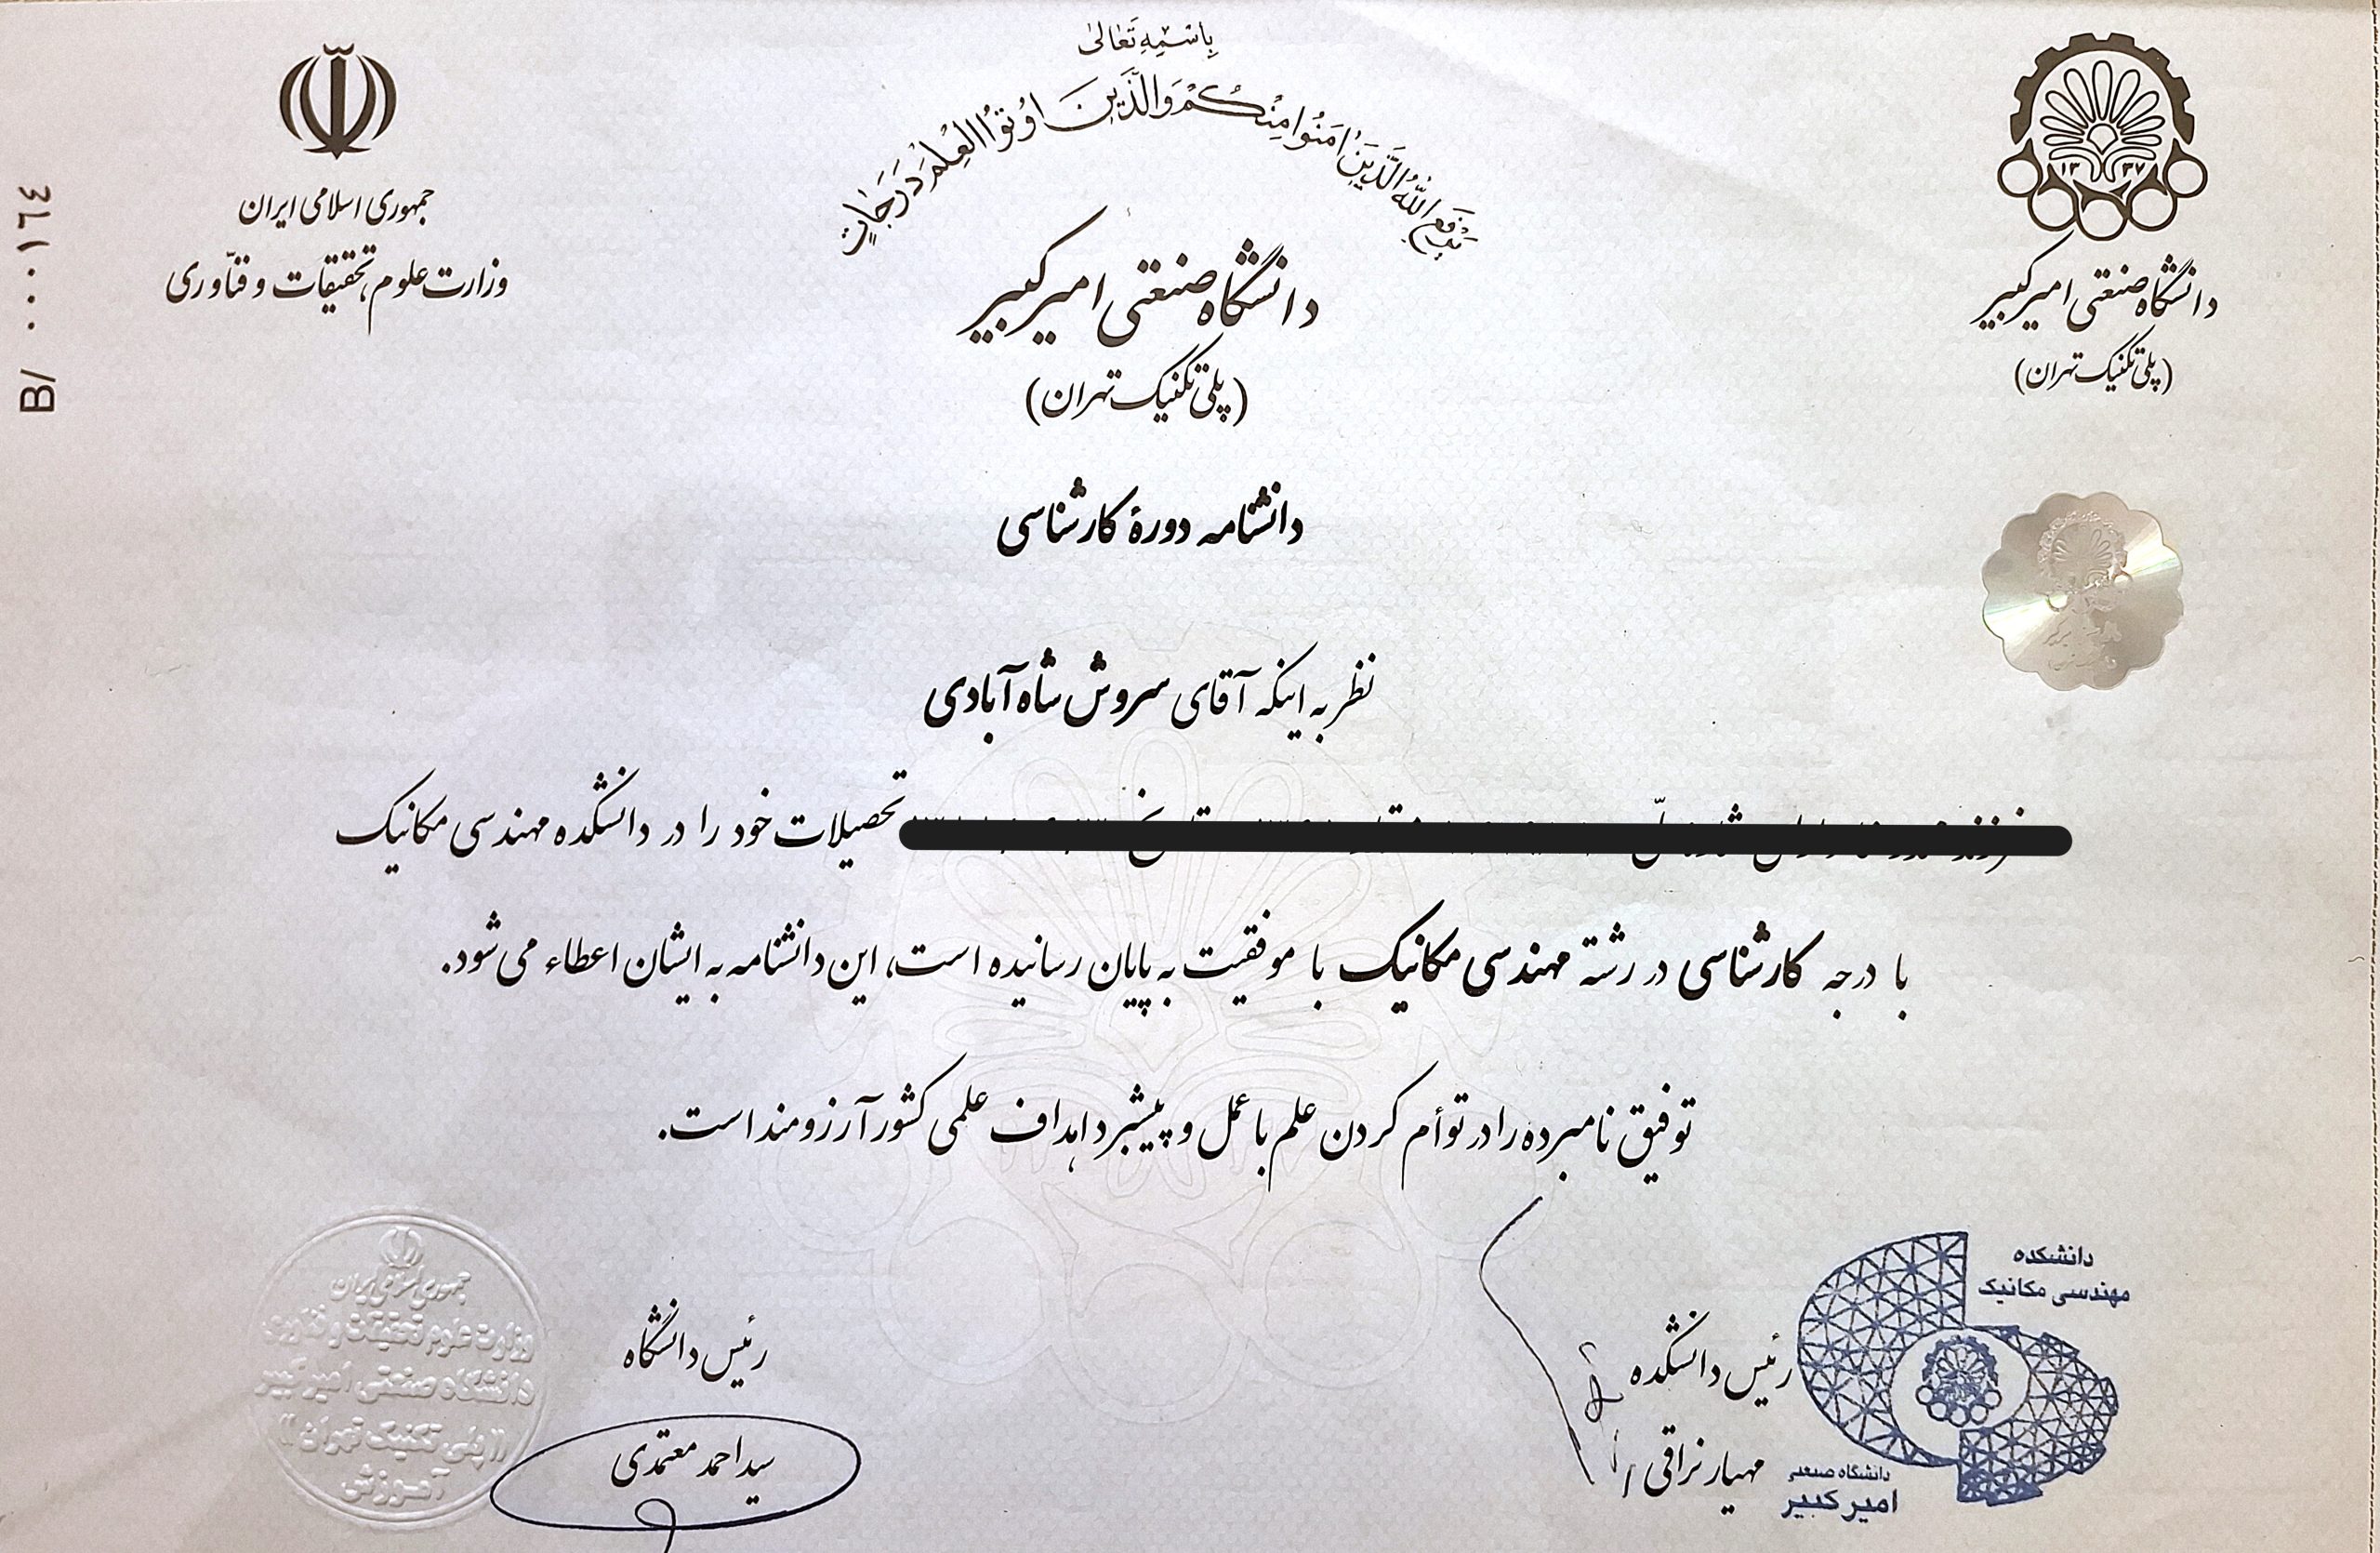 باسمه تعالی
یَرفَعِ اللهُ الَّذینَ امَنُوا مِنْکُمْ وَالَّذینَ اوُتوُا الْعِلْمَ دَرَجَاتٍ
۱۳۳۷
دانشگاه صنعتی امیرکبیر
(پلی تکنیک تهران)
جمهوری اسلامی ایران
وزارت علوم، تحقیقات و فنّاوری
B/ ۰۰۰۱٦٤
دانشگاه صنعتی امیرکبیر
(پلی تکنیک تهران)
دانشنامه دورهٔ کارشناسی
نظر به اینکه آقای سروش شاه آبادی
تحصیلات خود را در دانشکده مهندسی مکانیک
با درجه کارشناسی در رشتهٔ مهندسی مکانیک با موفقیت به پایان رسانیده است، این دانشنامه به ایشان اعطاء می شود.
توفیق نامبرده را در توأم کردن علم با عمل و پیشبرد اهداف علمی کشور آرزومند است.
دانشکده
مهندسی مکانیک
رئیس دانشکده
مهیار نراقی
دانشگاه صنعتی
امیرکبیر
رئیس دانشگاه
سید احمد معتمدی
جمهوری اسلامی ایران
وزارت علوم تحقیقات و فناوری
دانشگاه صنعتی امیرکبیر
((پلی تکنیک تهران))
آموزش